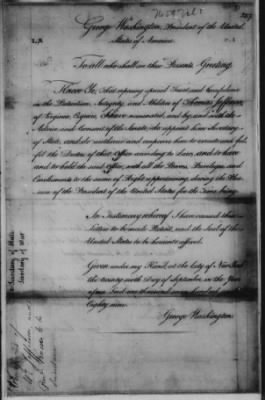 George Washington, President of the United
States of America.
To all who shall see these Presents, Greeting.
Know Ye, That reposing special Trust and Confidence
in the Patriotism, Integrity and Abilities of Thomas Jefferson
of Virginia Esquire, I have nominated, and by and with the
Advice and Consent of the Senate, do appoint him Secretary
of State, and do authorize and empower him to execute and ful-
fil the Duties of that Office according to Law; and to have
and to hold the said office, with all the Powers, Privileges and
Emoluments to the same of Right appertaining, during the Plea-
sure of the President of the United States for the Time being.
In Testimony whereof I have caused these
Letters to be made Patent, and the Seal of the
United States to be hereunto affixed.
Given under my Hand, at the City of New York
the twenty sixth Day of September in the Year
of our Lord one thousand seven hundred and
Eighty nine.
George Washington.
Secretary of State
Secretary of War